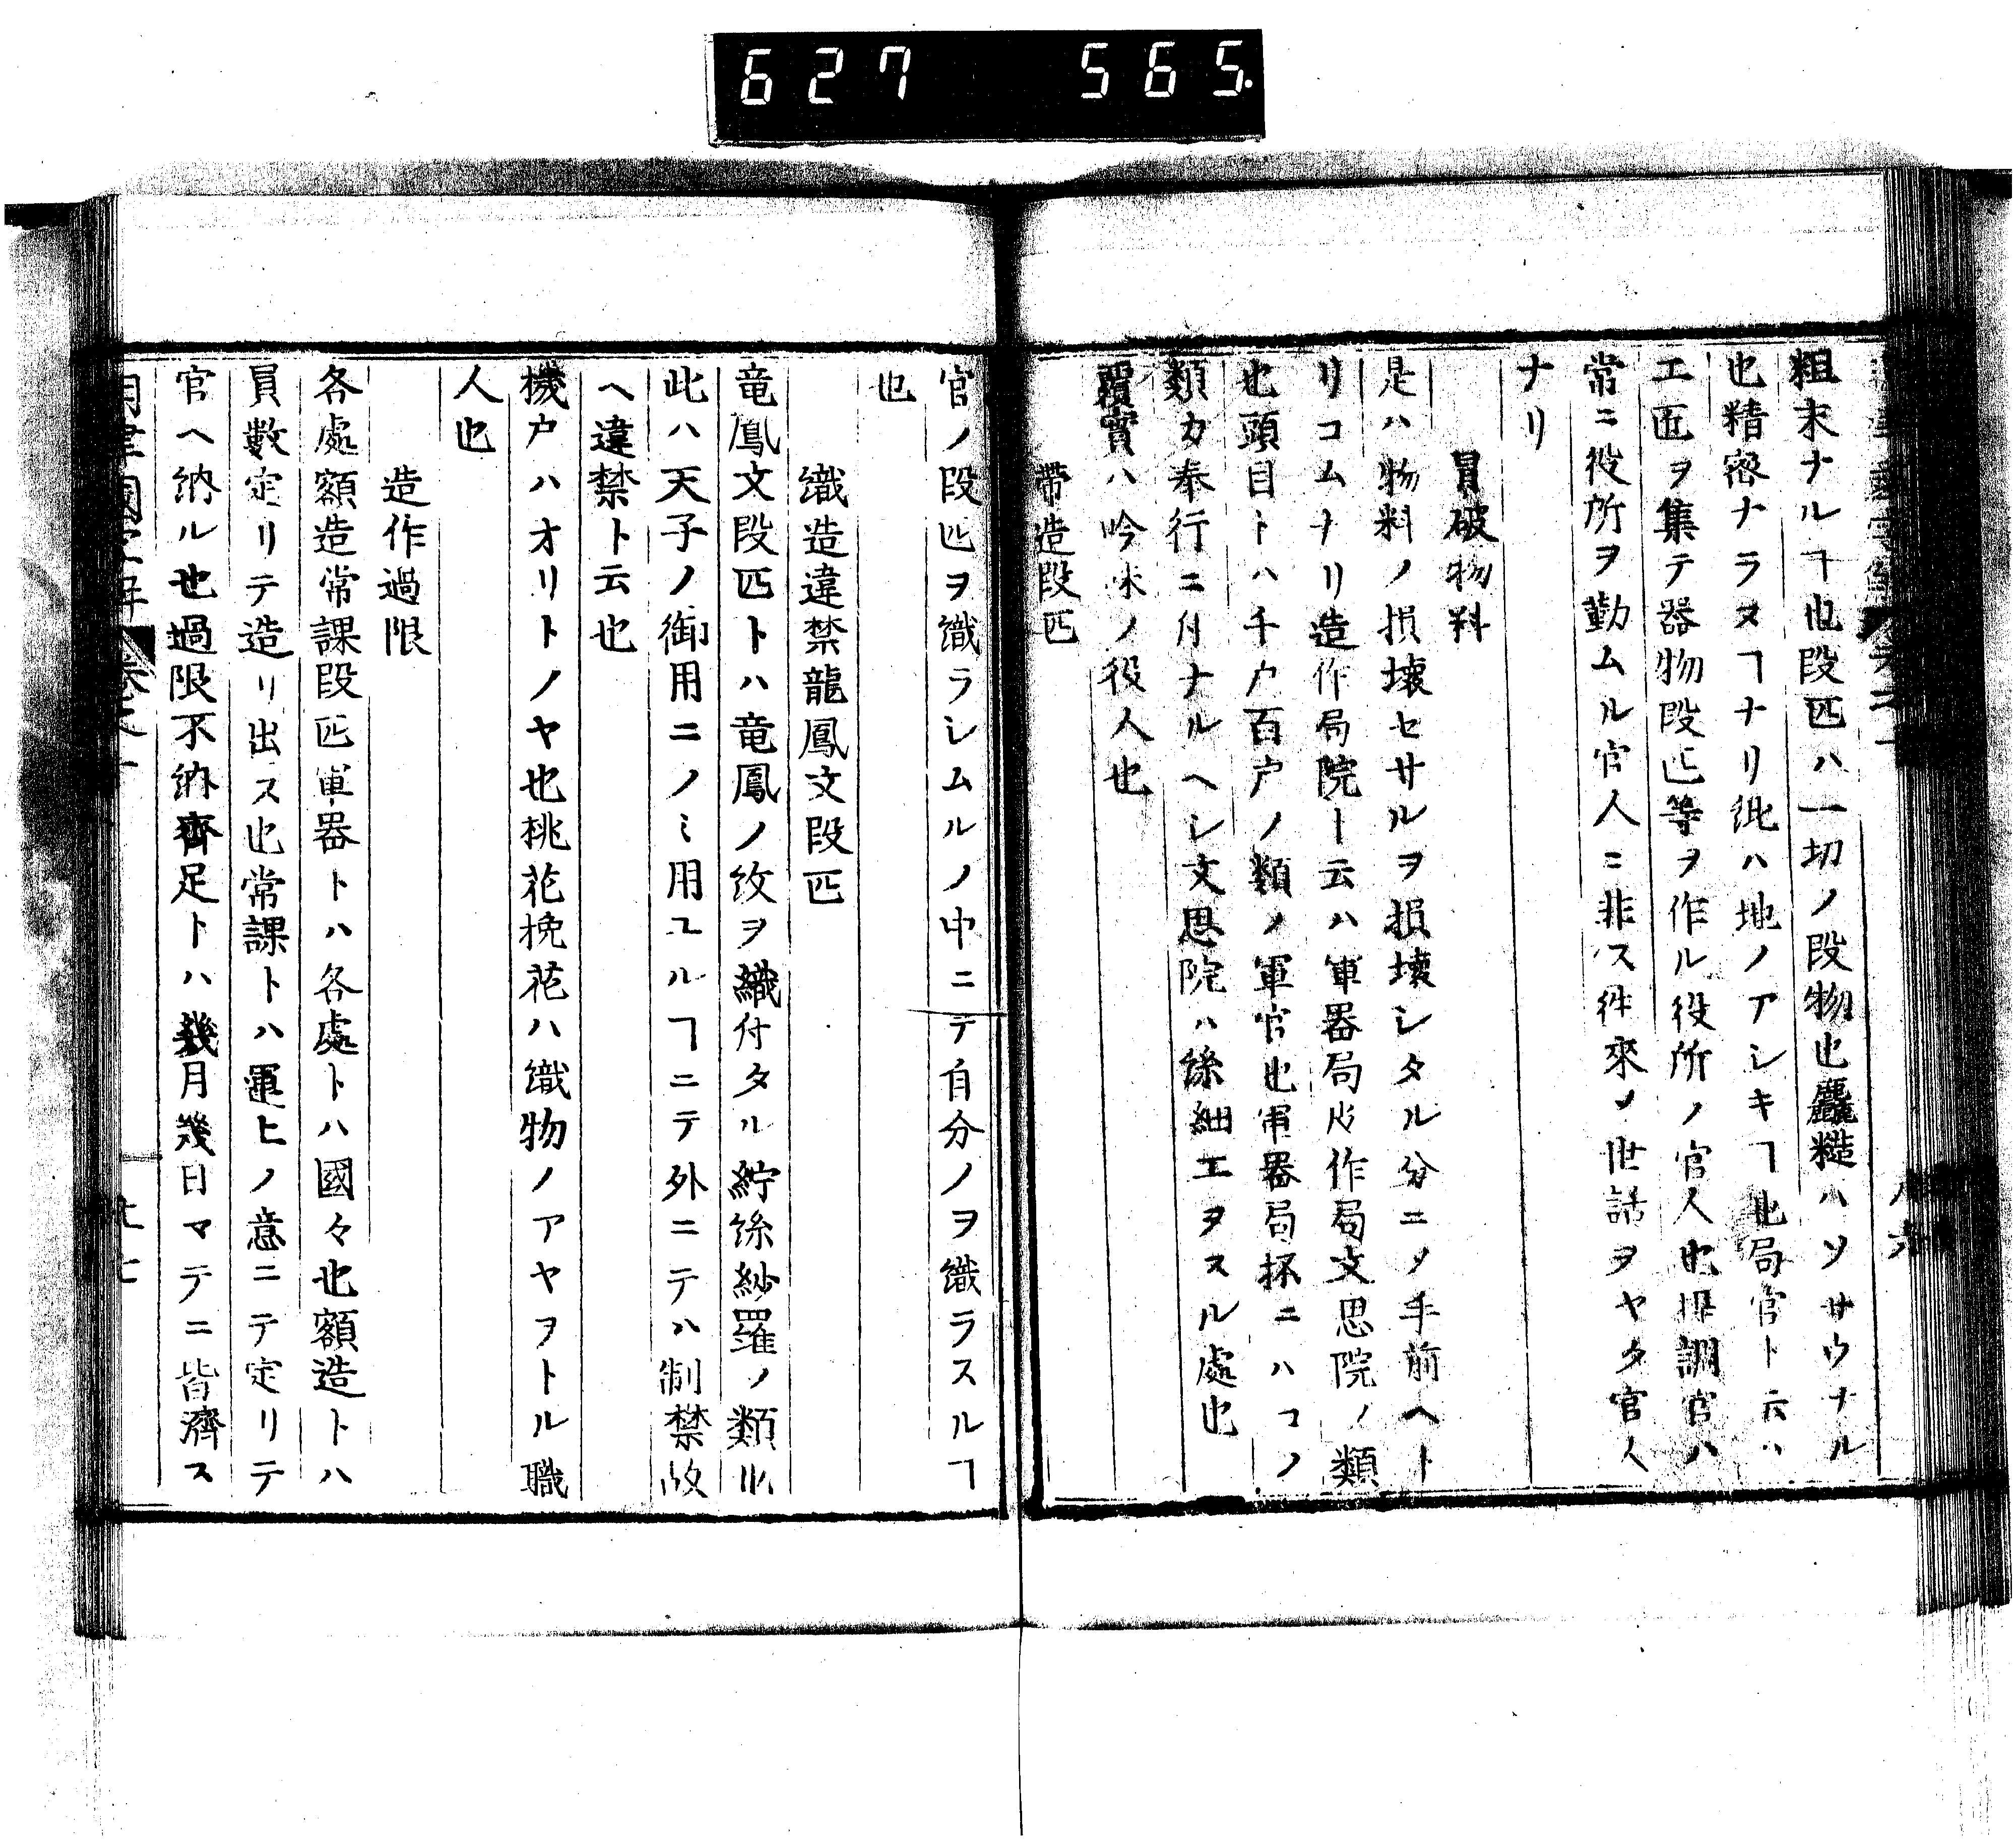 627 565.
粗末ナルヿ也段匹ハ一切ノ段物也麤糙ハソサウナル
也精密ナラヌヿナリ紕ハ地ノアシキヿ也局官ト云ハ
工匠ヲ集テ器物段匹等ヲ作ル役所ノ官人也提調官ハ
常ニ役所ヲ勤ムル官人ニ非ス徃來ノ世話ヲヤク官人
ナリ
冒破物料
是ハ物料ノ損壊セサルヲ損壊シタル分ニノ手前ヘト
リコムナリ造作局院ト云ハ軍器局皮作局文思院ノ類
也頭目トハ千户百户ノ類ノ軍官也軍器局抔ニハコノ
類カ奉行ニ付ナルヘシ文思院ハ絲細工ヲスル處也
覆實ハ吟味ノ役人也
帶造段匹
官ノ段匹ヲ織ラシムルノ中ニテ自分ノヲ織ラスルヿ
也
織造違禁龍鳳文段匹
竜鳳文段匹トハ竜鳳ノ紋ヲ織付タル紵絲紗羅ノ類也
此ハ天子ノ御用ニノミ用ユルヿニテ外ニテハ制禁故
ヘ違禁ト云也
機户ハオリトノヤ也桃花挽花ハ織物ノアヤヲトル職
人也
造作過限
各處額造常課段匹軍器トハ各處トハ國々也額造トハ
員數定リテ造リ出ス也常課トハ運ヒノ意ニテ定リテ
官ヘ納ル也過限不納齊足トハ幾月幾日マテニ皆濟ス